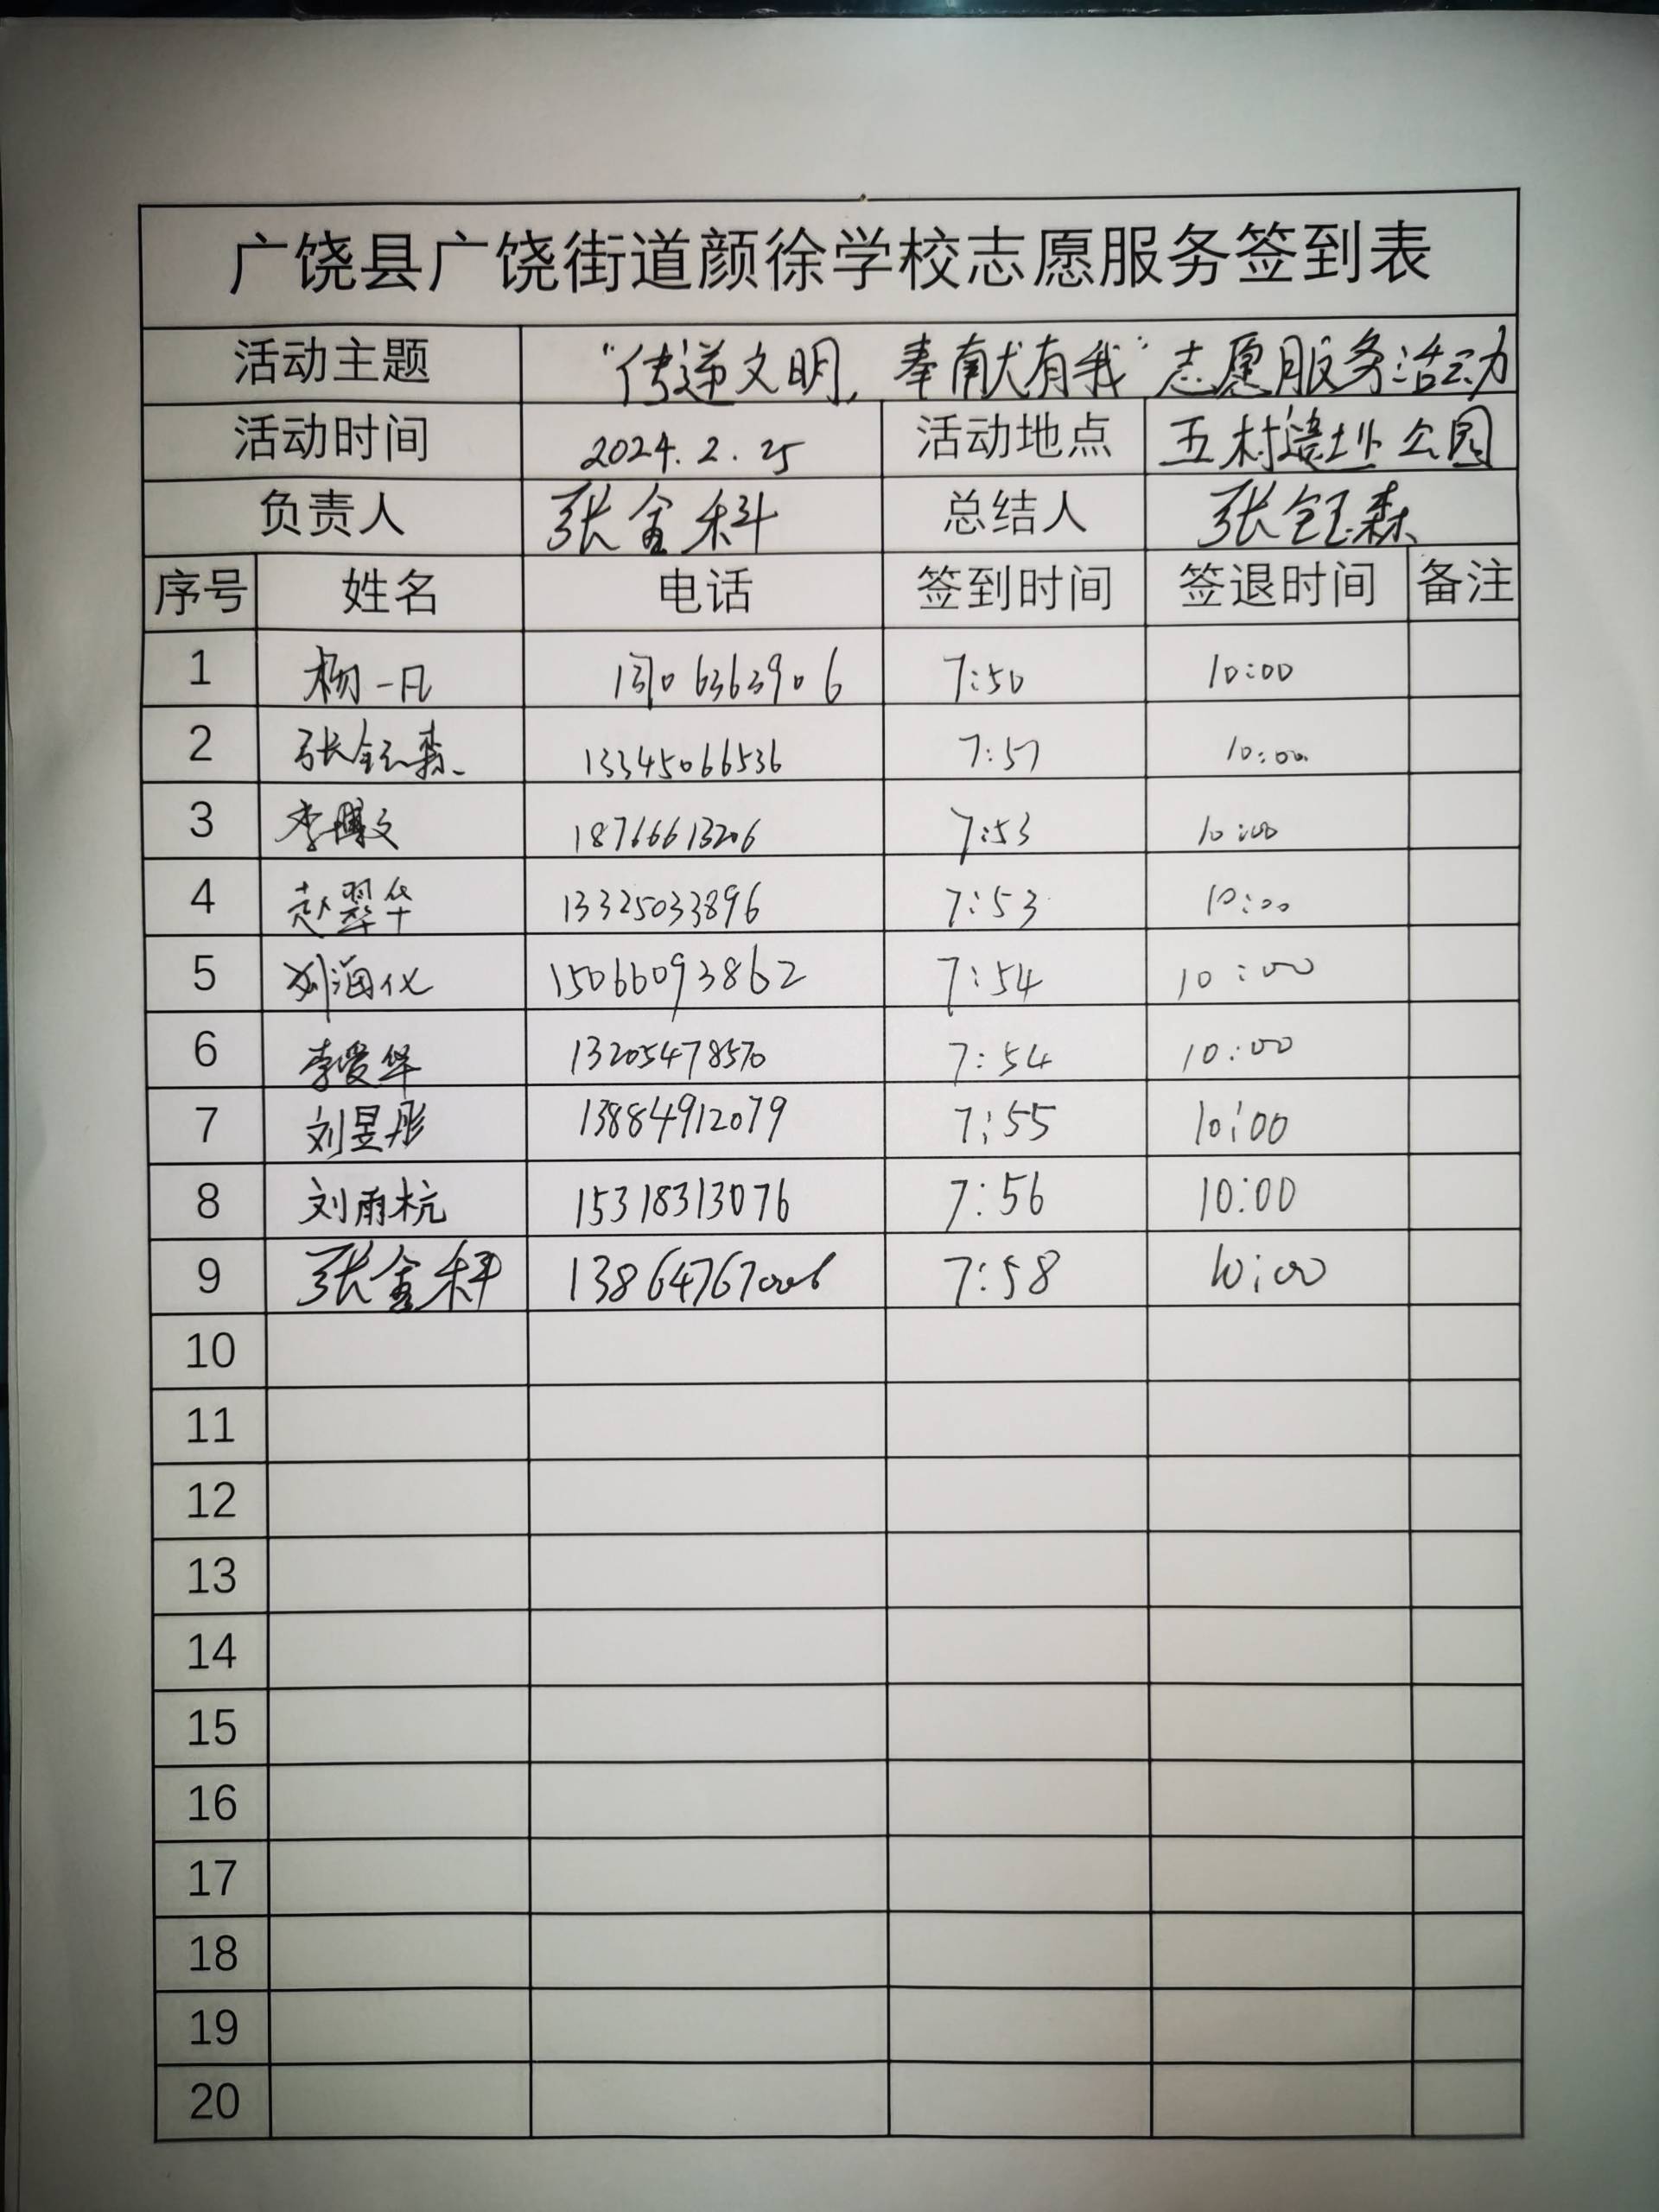 广饶县广饶街道颜徐学校志愿服务签到表
活动主题 “传递文明，奉献有我”志愿服务活动
活动时间 2024.2.25 活动地点 五村遗址公园
负责人 张金科 总结人 张钰森
序号 姓名 电话 签到时间 签退时间 备注
1 杨一凡 7:50 10:00
2 张钰森 13345066536 7:51 10:00
3 李博文 18766613206 7:53 10:00
4 赵翠华 13325033896 7:53 10:00
5 刘海仪 15066093862 7:54 10:00
6 李爱华 13205478570 7:54 10:00
7 刘昱彤 13884912079 7:55 10:00
8 刘雨杭 15318313076 7:56 10:00
9 张金科 13864767006 7:58 10:00
10
11
12
13
14
15
16
17
18
19
20